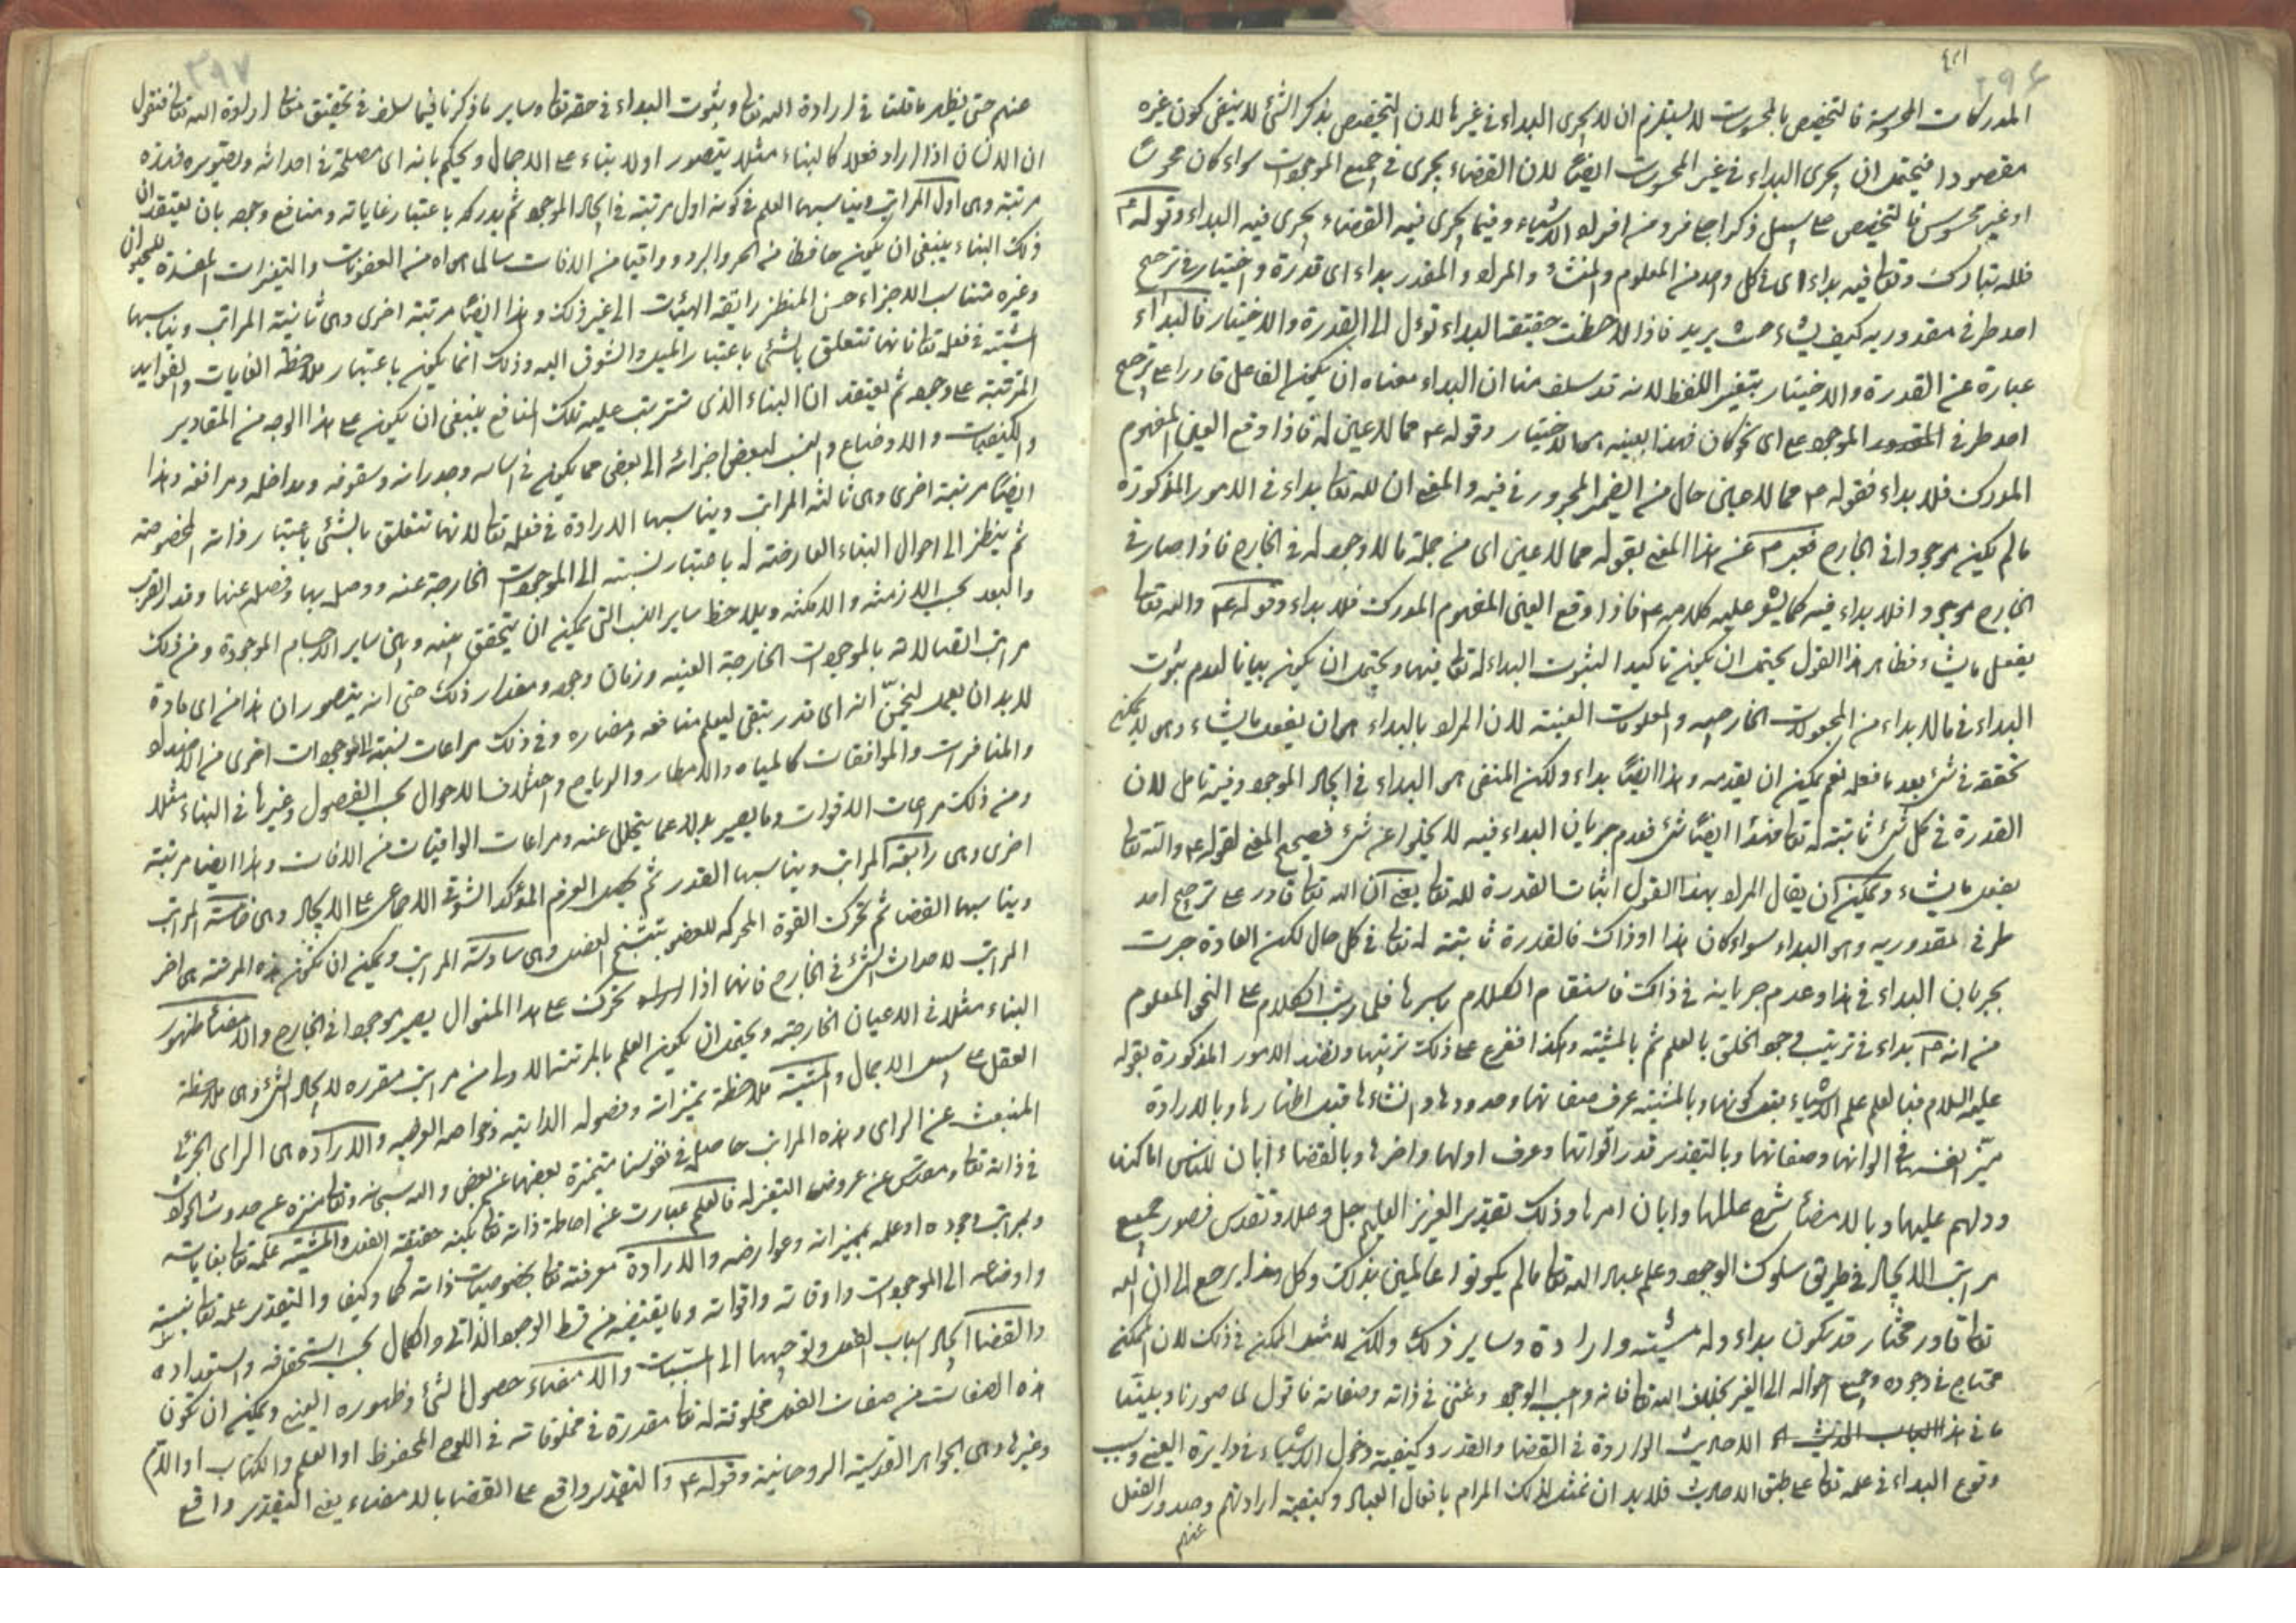 المدركات المحسوسة فالتخصيص بالمحسوسات لا يستلزم ان لا يجرى البداء فى غيرها لان التخصيص بذكر الشئ لا ينفى كون غيره
مقصودا فيحتمل ان يجرى البداء فى غير المحسوسات ايضا لان القضاء يجرى فى جميع الموجودات سواء كان محسوسا
او غير محسوس فالتخصيص على سبيل ذكر افراد من افراد الاشياء وفيما يجرى فيه القضاء يجرى فيه البداء وقوله ع
فلله تبارك وتعالى فيه بداء اى فى كل واحد من المعلوم والمنشأ والمراد والمقدر بداء اى قدرة واختيار فى ترجيح
احد طرفى مقدوريه كيف يشاء حيث يريد فاذا لاحظت حقيقة البداء تؤل الى القدرة والاختيار فالبداء
عبارة عن القدرة والاختيار بتغير اللفظ لانه قد سلف منا ان البداء معناه ان يكون الفاعل قادرا على ترجيح
احد طرفى المقدور الموجود على اى نحو كان فهذا بعينه هى الاختيار وقوله ع مما لا عين له فاذا وقع العين المفهوم
المدرك فلا بداء فقوله ع مما لا عين حال من الضمير المجرور فى فيه والمعنى ان لله تعالى بداء فى الامور المذكورة
ما لم يكن موجودا فى الخارج فعبر ع عن هذا المعنى بقوله مما لا عين اى من جملة ما لا وجود له فى الخارج فاذا صار فى
الخارج موجودا فلا بداء فيه كما يشعر عليه كلامه ع فاذا وقع العين المفهوم المدرك فلا بداء وقوله ع والله تعالى
يفعل ما يشاء فظاهر هذا القول يحتمل ان يكون تاكيدا لثبوت البداء له تعالى فيها ويحتمل ان يكون بيانا لعدم ثبوت
البداء فى ما لا بداء من المجعولات الخارجيه والمعلومات العينية لان المراد بالبداء هى ان يفعل ما يشاء وهى لا يمكن
تحققه فى شئ بعد ما فعله نعم يمكن ان يعدمه وهذا ايضا بداء ولكن المنفى هى البداء فى ايجاد الموجود وفيه تامل لان
القدرة فى كل شئ ثابتة له تعالى فهذا ايضا شئ فعدم جريان البداء فيه لا يخلوا عن شئ فصحيح المعنى لقوله ع والله تعالى
يفعل ما يشاء ويمكن ان يقال المراد بهذا القول اثبات القدرة لله تعالى يعنى ان الله تعالى قادر على ترجيح احد
طرفى مقدوريه وهى البداء سواء كان هذا او ذاك فالقدرة ثابتة له تعالى فى كل حال لكن العادة جرت
بجريان البداء فى هذا وعدم جريانه فى ذاك فاستقام الكلام باسرها فلما رتب الكلام على النحو المعلوم
من انه ع بداء فى ترتيب وجود الخلق بالعلم ثم بالمشية وهكذا ففرع على ذلك ترتيبها ونضد الامور المذكورة بقوله
عليه السلام فبالعلم علم الاشياء قبل كونها وبالمشية عرف صفاتها وحدودها وانشاءها قبل اظهارها وبالارادة
ميّز انفسها فى الوانها وصفاتها وبالتقدير قدر اقواتها وعرف اولها واخرها وبالقضاء ابان للناس اماكنها
ودلهم عليها وبالامضاء شرح عللها وابان امرها وذلك تقدير العزيز العليم جل وعلا وتقدس فصور جميع
مراتب الايجاد فى طريق سلوك الوجود وعلم عباد الله تعالى ما لم يكونوا عالمين بذلك وكل هذا يرجع الى ان الله
تعالى قادر مختار قد يكون بداء وله مشيته وارادة وساير ذلك ولكن لا مثل الممكن فى ذلك لان الممكن
محتاج فى وجوده وجميع احواله الى الغير بخلاف الله تعالى فانه واجب الوجود وغنى فى ذاته وصفاته فاقول لما صورنا وبلينا
ما فى هذا الباب الاحاديث الواردة فى القضا والقدر وكيفية دخول الاشياء فى دايرة العينى وسبب
وقوع البداء فى علمه تعالى على طبق الاحاديث فلا بد ان نمثل لذلك المرام بافعال العباد وكيفية ارادتهم وصدور الفعل
عنهم
عنهم حتى يظهر ما قلنا فى ارادة الله تعالى وثبوت البداء فى حقه تعالى وساير ما ذكرنا فيما سلف فى تحقيق معنى ارادة الله تعالى فنقول
ان الانسان اذا اراد فعلا كالبناء مثلا يتصور اولا بناء على الاجمال ويحكم بانه اى مصلحة فى احداثه وتصويره فهذه
مرتبة وهى اول المراتب ويناسبها العلم فى كونه اول مرتبة فى ايجاد الموجود ثم يدركه باعتبار غاياته ومنافع وجوده بان يعتقد ان
ذلك البناء ينبغى ان يكون حافظا من الحر والبرد وواقيا من الافات سالما هواه من العفونات والتغيرات المفسدة للحيوان
وغيره متناسب الاجزاء حسن المنظر رايقة الهيئات الى غير ذلك وهذا ايضا مرتبة اخرى وهى ثانية المراتب ويناسبها
المشية فى فعله تعالى فانها تتعلق بالشئ باعتبار الميل والشوق اليه وذلك انما يكون باعتبار ملاحظة الغايات والفوايد
المترتبة على وجوده ثم يعتقد ان البناء الذى تترتب عليه تلك المنافع ينبغى ان يكون على هذا الوجه من المقادير
والكيفيات والاوضاع والنسب لبعض اجزائه الى بعض مما يكون فى اساسه وجدرانه وسقوفه ومداخله ومرافقه وهذا
ايضا مرتبة اخرى وهى ثالثة المراتب ويناسبها الارادة فى فعله تعالى لانها تتعلق بالشئ باعتبار ذاته المخصوصة
ثم ينظر الى احوال البناء العارضة له باعتبار نسبته الى الموجودات الخارجة عنه ووصل بها وفصله عنها وقدر القرب
والبعد بحسب الازمنة والامكنة ويلاحظ ساير النسب التى يمكن ان يتحقق بينه وبين ساير الاجسام الموجودة ومن ذلك
مراتب اتصالاته بالموجودات الخارجة العينية وزمان وجوده ومقدار ذلك حتى انه يتصور ان هذا من اى مادة
لا بد ان يعمل ليخمن انه اى قدر يبقى ليعلم منافعه ومضاره وفى ذلك مراعات نسبته الى الموجودات اخرى من الاضداد
والمنافرات والموافقات كالمياه والامطار والرياح واختلاف الاحوال بحسب الفصول وغيرها فى البناء مثلا
ومن ذلك مراعات الاقوات وما يصير بدلا عما يتحلل عنه ومراعات الواقيات من الافات وهذا ايضا مرتبة
اخرى وهى رابعة المراتب ويناسبها القدر ثم يحصل العزم المؤكد الشوقى الاجماعى على الايجاد وهى خامسة المراتب
ويناسبها القضا ثم تحرك القوة المحركه للعضو بتشنج العضل وهى سادسة المراتب ويمكن ان تكون هذه المرتبة هى اخر
المراتب لاحداث الشئ فى الخارج فانها اذا تحركت على هذا المنوال يصير موجودا فى الخارج والامضاء ظهور
البناء مثلا فى الاعيان الخارجة ويحتمل ان يكون العلم بالمرتبة الاولى من مراتب مقرره لايجاد الشئ وهى ملاحظة
العقل على سبيل الاجمال والمشية ملاحظة تميزاته وفصوله الذاتيه وخواصه العرضيه والارادة هى الراى الجزئى
المنبعث عن الراى وهذه المراتب حاصل فى نفوسنا متميزة بعضها عن بعض والله سبحانه وتعالى منزه عن حدوث الحوادث
فى ذاته تعالى ومقدس عن عروض التغير له فالعلم عبارت عن احاطة ذاته تعالى بكنه حقيقة الفعل والمشية علمه تعالى بغاياته
وبمراتب وجوده او علمه بمميزاته وعوارضه والارادة معرفته تعالى بخصوصيات ذاته كما وكيف والتقدير علمه تعالى بنسبته
واوضاعه الى الموجودات واوقاته واقواته وما يقتضيه من قسط الوجود الذاتى والكمال بحسب استحقاقه واستعداده
والقضا ايجاد اسباب الفعل وتوجيهها الى المسببات والامضاء حصول الشئ وظهوره العينى ويمكن ان تكون
هذه الصفات من صفات الفعل مخلوقة له تعالى مقدرة فى مخلوقاته فى اللوح المحفوظ او العلم والكتاب او اللوح
وغيرها وهى الجواهر القدسية الروحانية وقوله ع والتقدير واقع على القضا بالامضاء يعنى التقدير واقع